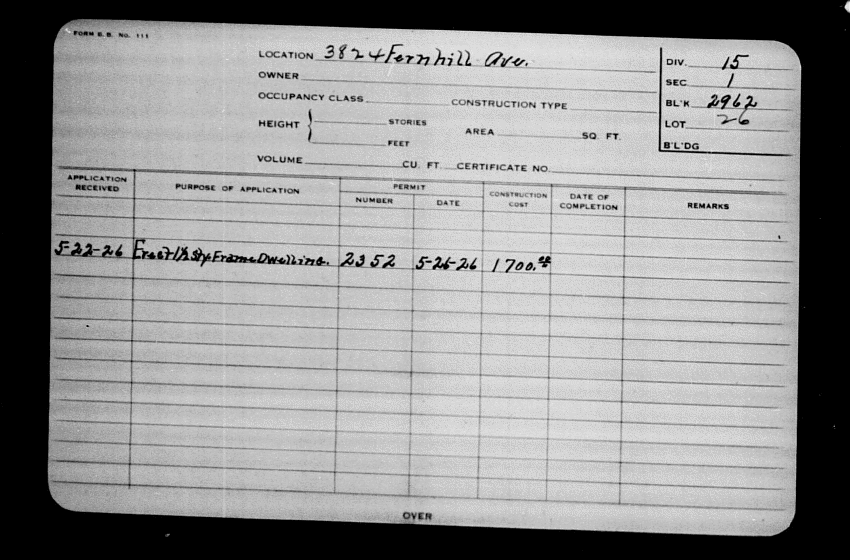 FORM B. B. No. 111
LOCATION 3824 Fernhill Ave.
OWNER
OCCUPANCY CLASS CONSTRUCTION TYPE
HEIGHT { STORIES
FEET
AREA SQ. FT.
VOLUME CU. FT. CERTIFICATE NO.
DIV. 15
SEC 1
BL'K 2962
LOT 26
B'L'DG
APPLICATION RECEIVED PURPOSE OF APPLICATION PERMIT NUMBER DATE CONSTRUCTION COST DATE OF COMPLETION REMARKS
5-22-26 Erect 1½ sty. Frame Dwelling. 2352 5-26-26 1700.00
OVER